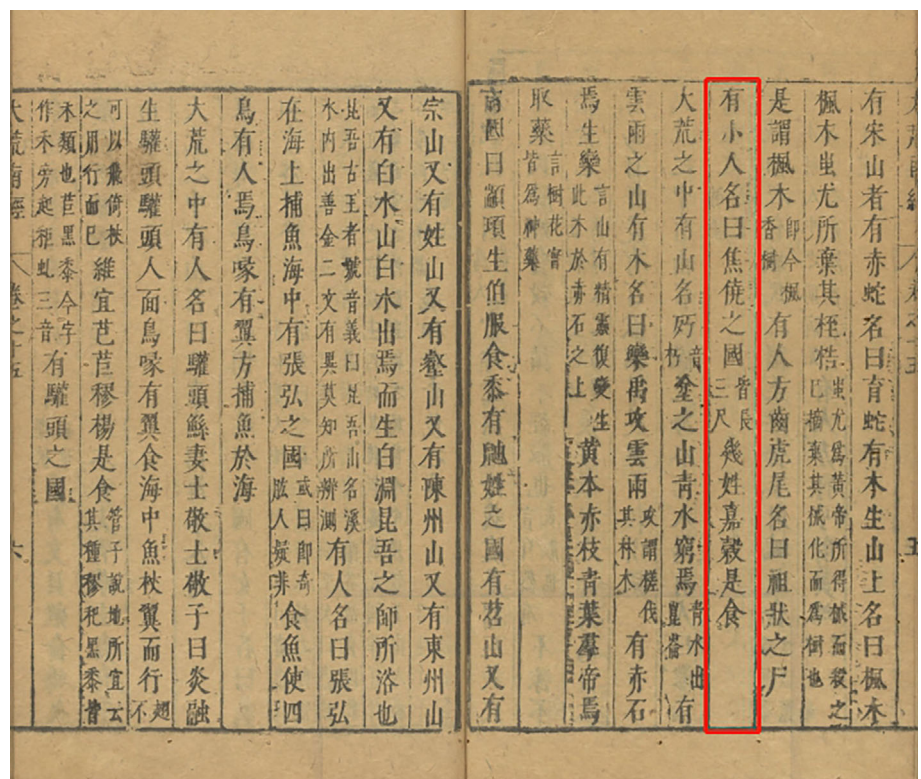 有宋山者有赤蛇名曰育蛇有木生山上名曰楓木
楓木蚩尤所棄其桎梏蚩尤爲黃帝所得械而殺之已摘棄其械化而爲樹也
是謂楓木即今楓香樹有人方齒虎尾名曰祖狀之尸
有小人名曰焦僥之國皆長三尺幾姓嘉穀是食
大荒之中有山名㱙音朽塗之山青水窮焉青水出崑崙有
雲雨之山有木名曰欒禹攻雲雨攻謂槎伐其林木有赤石
焉生欒言山有精靈復變生此木於赤石之上黃本赤枝青葉羣帝焉
取藥言樹花實皆爲神藥
有國曰顓頊生伯服食黍有鼬姓之國有苕山又有
宗山又有姓山又有壑山又有陳州山又有東州山
又有白水山白水出焉而生白淵昆吾之師所浴也
昆吾古王者號音義曰昆吾山名溪水內出善金二文有異莫知所辨測有人名曰張弘
在海上捕魚海中有張弘之國或曰即奇肱人疑非食魚使四
鳥有人焉鳥喙有翼方捕魚於海
大荒之中有人名曰驩頭鯀妻士敬士敬子曰炎融
生驩頭驩頭人面鳥喙有翼食海中魚杖翼而行翅不
可以飛倚杖之用行而已維宜芑苣穋楊是食管子說地所宜云其種穋秠黑黍皆
禾類也苣黑黍今字作禾旁起秬虬三音有驩頭之國
大荒南經 卷之十五 六